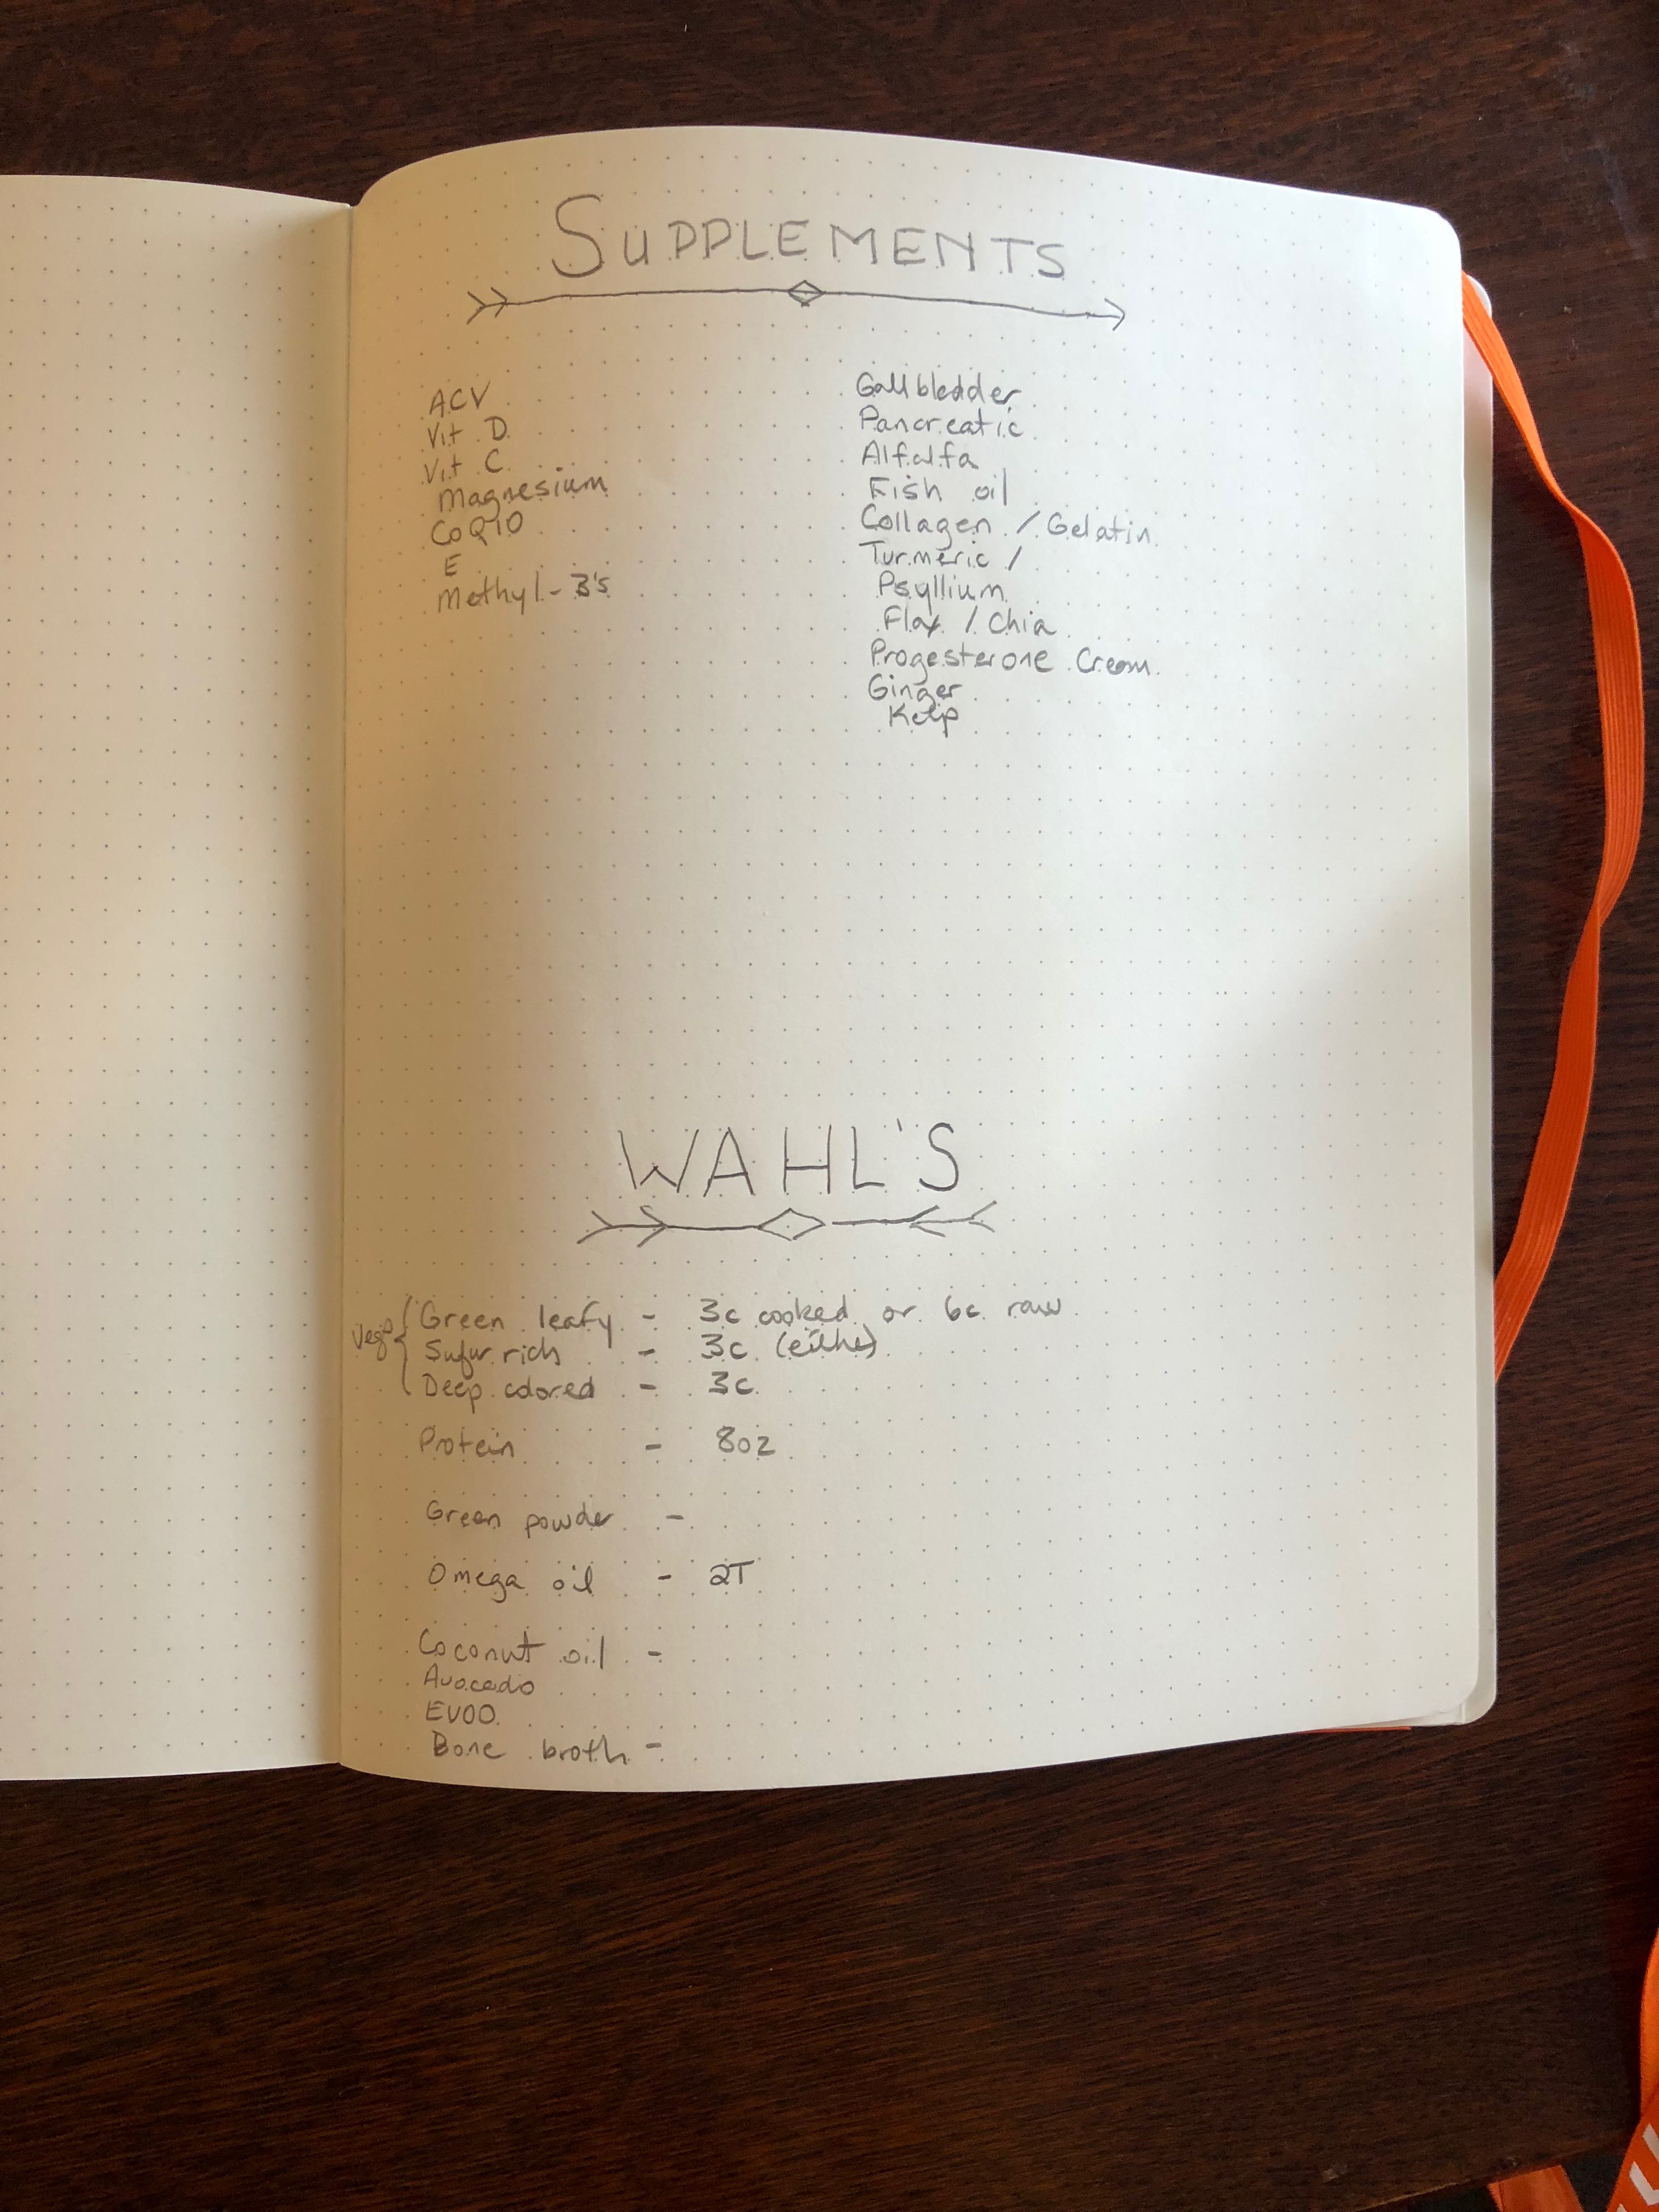 SUPPLEMENTS
ACV
Vit D
Vit C
Magnesium
CoQ10
E
Methyl-B's
Gallbledder
Pancreatic
Alfalfa
Fish oil
Collagen / Gelatin
Turmeric /
Psyllium
Flax / Chia
Progesterone Cream
Ginger
Kelp
WAHL'S
Vegs
Green leafy - 3c cooked or 6c raw
Sulfur rich - 3c (either)
Deep colored - 3c
Protein - 8oz
Green powder -
Omega oil - 2T
Coconut oil -
Avocado
EVOO
Bone broth -